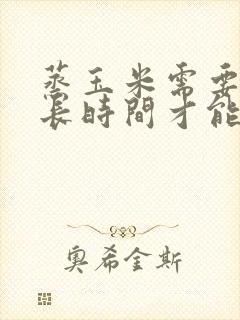 蒸玉米需要
長時間才能
奧希金斯